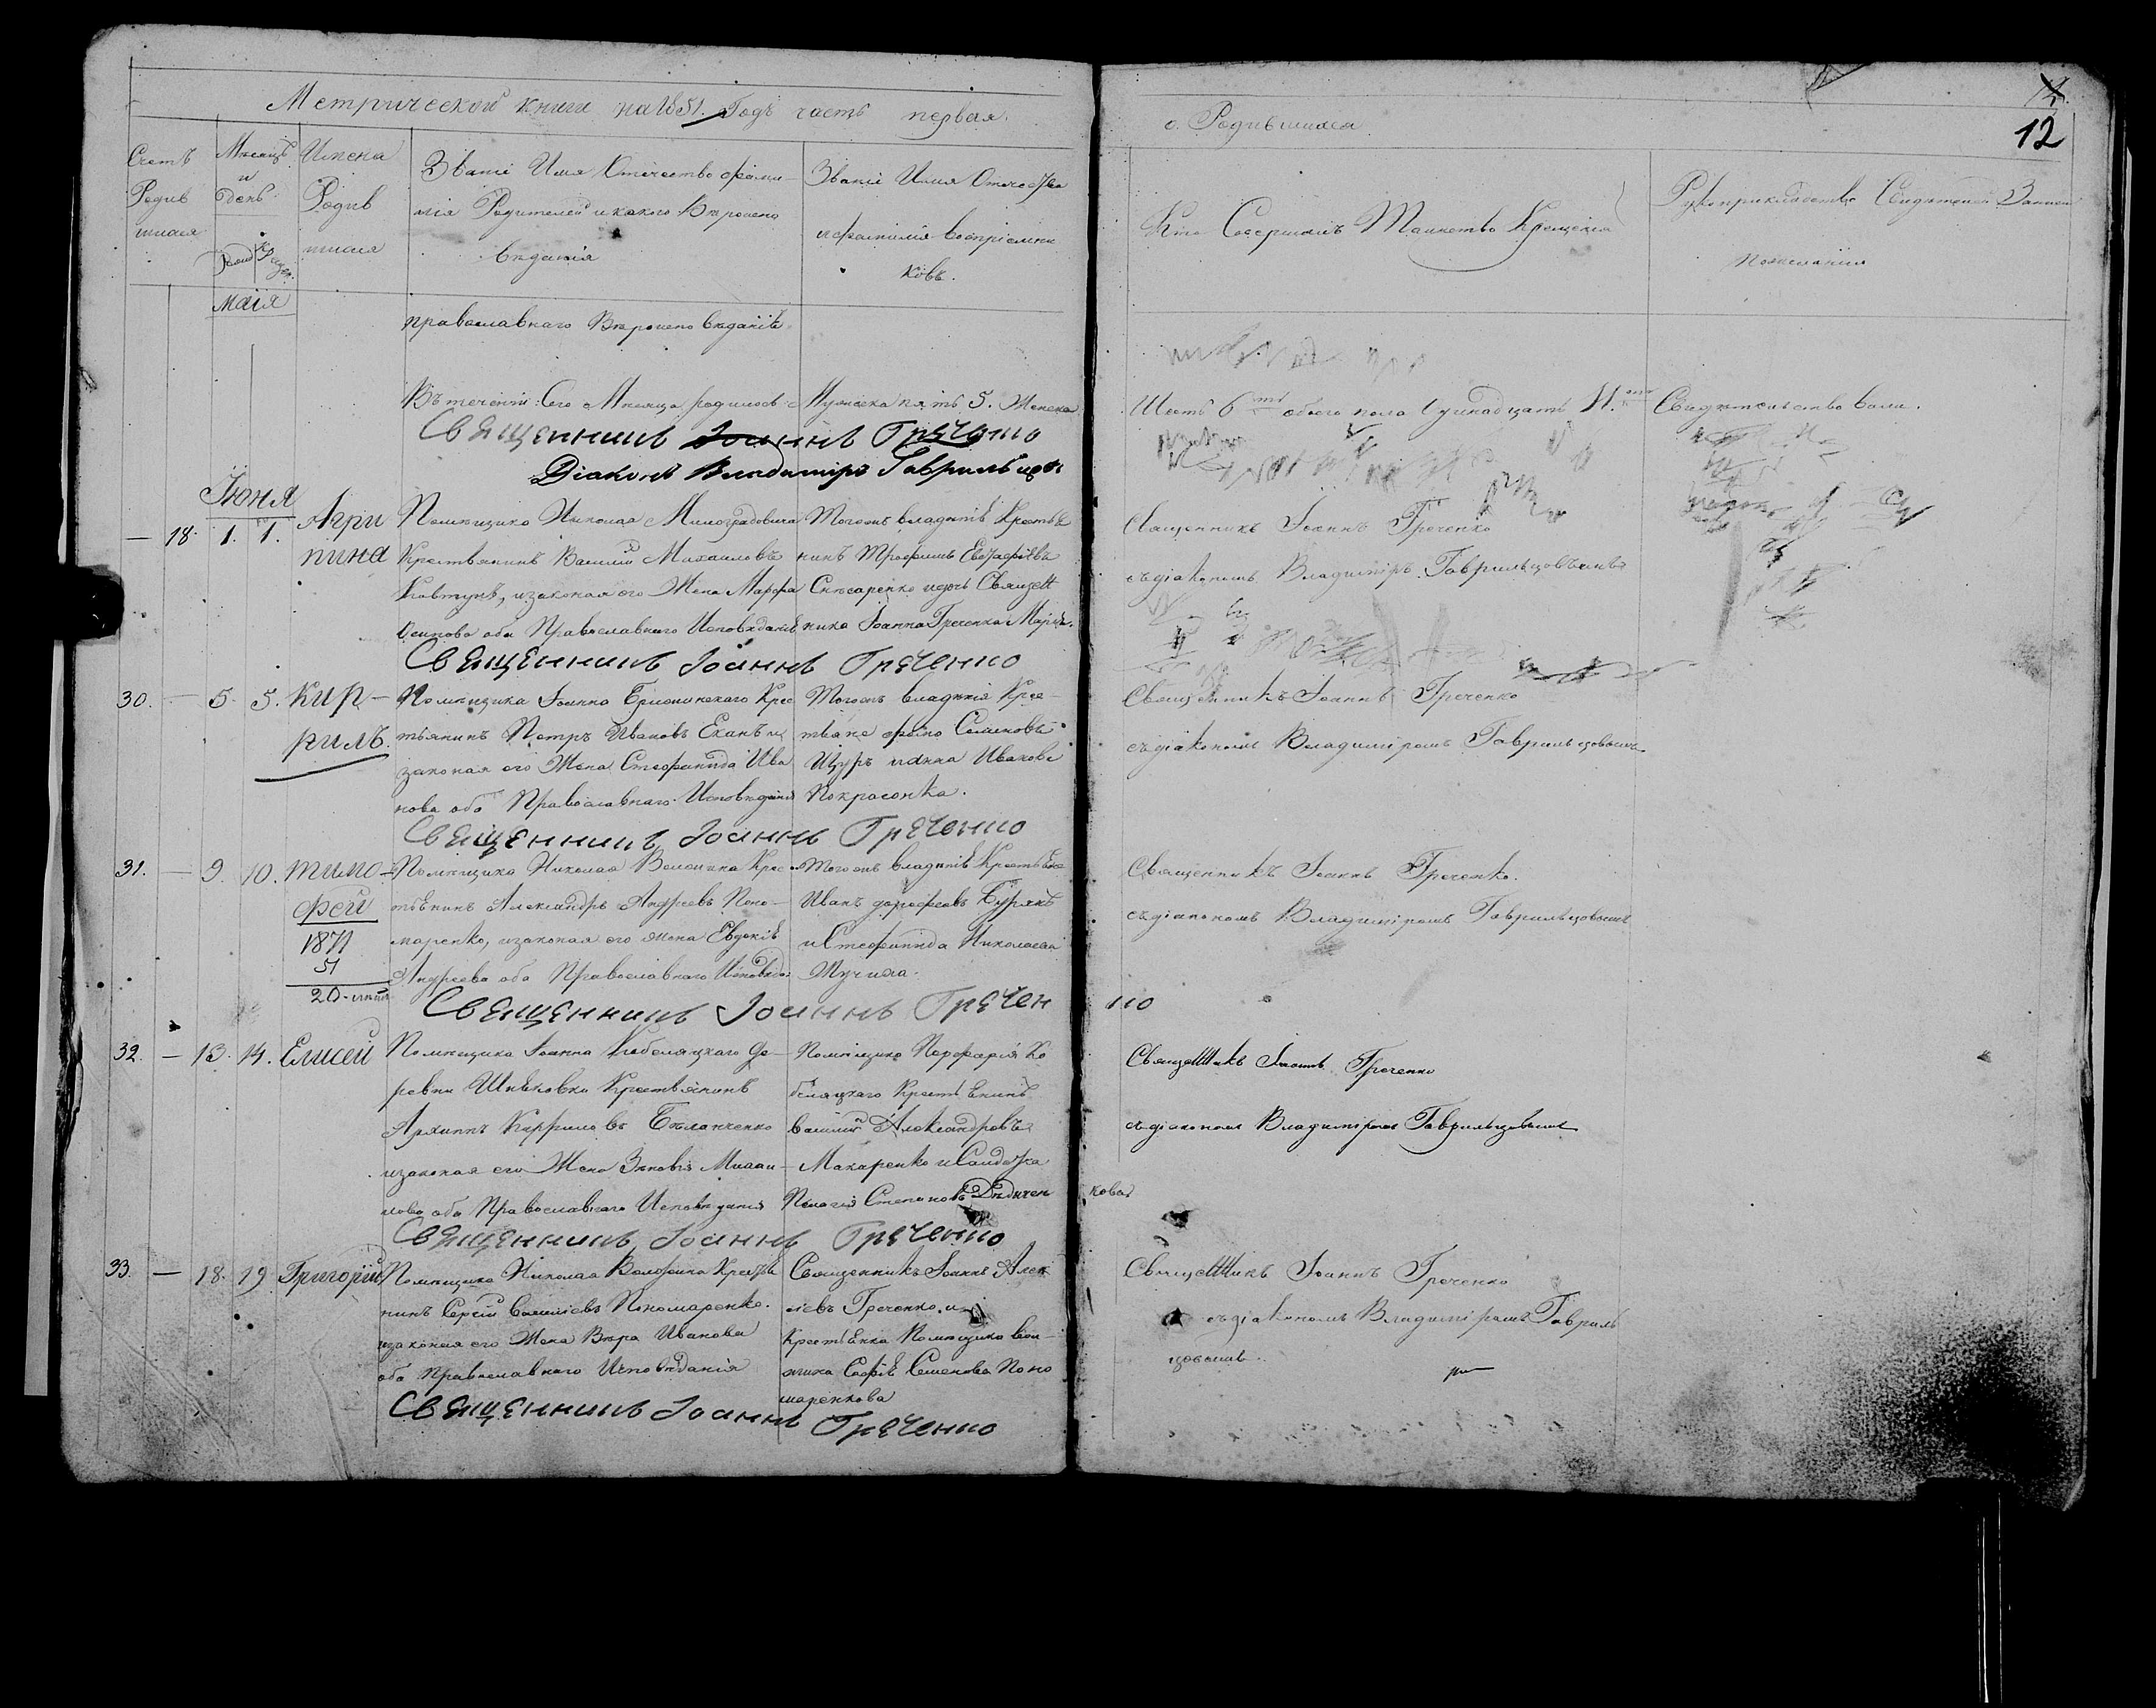 Метрической книги на 1851. Годъ часть первая.
о Родившихся
12
Счетъ Родив шихся
Мѣсяцъ и день
Имена Родив шихся
Званіе Имя Отечество фами-
лія Родителей и какого Вѣроиспо
вѣданія
Званіе Имя Отечество
и фамилія Воспріемни
ковъ.
Кто Совершалъ Таинство Крещенія
Рукоприкладство Свидѣтелей Записи
по желанію
маія
православнаго Вѣроиспо вѣданія.
Въ теченіи Сего Мѣсяца родилось Мужеска пять 5. Женска
Шесть 6 обоего пола 11. Свидѣтельствовали.
Священникъ Іоаннъ Греченко
Діаконъ Владимиръ Гаврильцовъ
Іюня
18. 1. 1. Агри
пина
Помѣщика Николая Милорадовича
Крестьянинъ Василій Михаиловъ
Ковтунъ, изаконая его Жена Марфа
Осипова оба Православнаго Исповѣданія
Тогожъ владѣнія Крестья
нинъ Трофимъ Евстафіевъ
Слюсаренко и дочь Священ
ника Іоанна Греченка Марія.
Священникъ Іоаннъ Греченко
съ діакономъ Владиміръ Гаврильцовымъ
Священникъ Іоаннъ Греченко
30. — 5. 5. Кир-
рилъ.
Помѣщика Іоанна Крес
тьянинъ Петръ Ивановъ и
законая его Жена Стефанида Ива
нова оба Православнаго Исповѣданія
Тогожъ владѣнія Крес-
тьяне Семеновъ
Щуръ и Анна Иванова
Покрасенка.
Священникъ Іоаннъ Греченко
съ діакономъ Владиміромъ Гаврильцовымъ
Священникъ Іоаннъ Греченко
31. — 9. 10. Тимо-
фей
1871
51
20-
Помѣщика Николая Волошина Крес
тьянинъ Александръ Андреевъ Поно-
маренко, изаконая его жена Евдокія
Андреева оба Православнаго Исповѣда:
Тогожъ владѣнія Крестьяне
Иванъ Дорофеевъ Бурякъ
и Стефанида Николаева
Священникъ Іоаннъ Греченко.
съ діакономъ Владиміромъ Гаврильцовымъ
Священникъ Іоаннъ Гречен
ко
32. — 13. 14. Елисей
Помѣщика Іоанна Кобеляцкаго де-
ревни Крестьянинъ
Архипъ Кирриловъ Беланченко
изаконая его Жена Зиновія Михаи-
лова оба Православнаго Исповѣданія
Помѣщика Порфирія Ко
беляцкаго Крестьянинъ
Василій Александровъ
Макаренко и Солдатка
Пелагія Степанова Дядичен
кова
Священникъ Іоаннъ Греченко
съ діакономъ Владиміромъ Гаврильцовымъ
Священникъ Іоаннъ Греченко
33. — 18. 19 Григорій
Помѣщика Николая Волошина Крестья
нинъ Сергій Василіевъ Пономаренко.
изаконая его Жена Вѣра Иванова
оба Православнаго Исповѣданія
Священникъ Іоаннъ Алек
сіевъ Греченко. и
Крестьянка Помѣщика Воло
шина Софія Семенова Поно
маренкова
Священникъ Іоаннъ Греченко
съ діакономъ Владиміромъ Гавриль
цовымъ.
Священникъ Іоаннъ Греченко